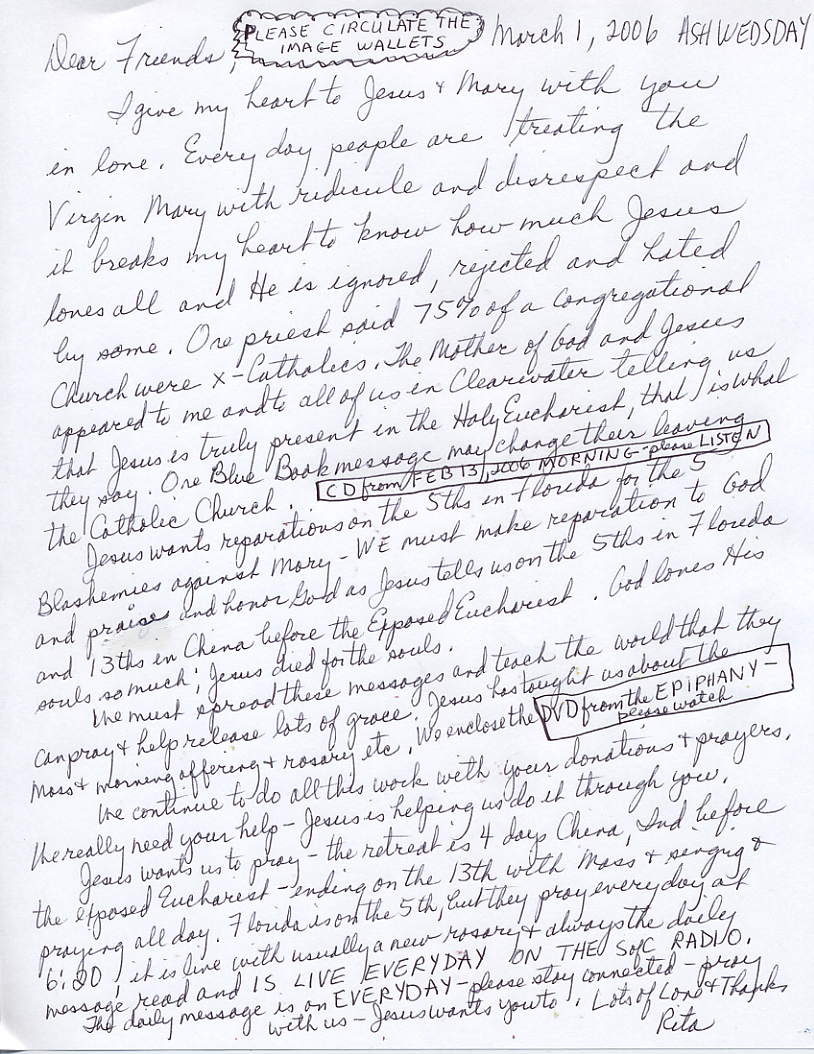 PLEASE CIRCULATE THE
IMAGE WALLETS
March 1, 2006 ASHWEDSDAY
Dear Friends,
I give my heart to Jesus + Mary with you
in love. Every day people are treating the
Virgin Mary with ridicule and disrespect and
it breaks my heart to know how much Jesus
loves all and He is ignored, rejected and hated
by some. One priest said 75% of a Congregational
Church were x-Catholics. The Mother of God and Jesus
appeared to me and to all of us in Clearwater telling us
that Jesus is truly present in the Holy Eucharist, that is what
they say. One Blue Book message may change their leaving
the Catholic Church. CD from FEB 13, 2006 MORNING-please LISTEN
Jesus wants reparations on the 5ths in Florida for the 5
Blashemies against Mary - WE must make reparation to God
and praise and honor God as Jesus tells us on the 5ths in Florida
and 13ths in China before the Exposed Eucharist. God loves His
souls so much; Jesus died for the souls.
We must spread these messages and teach the world that they
can pray + help release lots of grace. Jesus has taught us about the
Mass + morning offering + rosary etc. We enclose the DVD from the EPIPHANY -
please watch
We continue to do all this work with your donations + prayers.
We really need your help - Jesus is helping us do it through you.
Jesus wants us to pray - the retreat is 4 days China, Ind. before
the exposed Eucharist - ending on the 13th with Mass + singing +
praying all day. Florida is on the 5th, but they pray every day at
6:20, it is live with usually a new rosary + always the daily
message read and IS LIVE EVERYDAY ON THE SofC RADIO.
The daily message is on EVERYDAY - please stay connected - pray
with us - Jesus wants you to. Lots of Love + Thanks
Rita